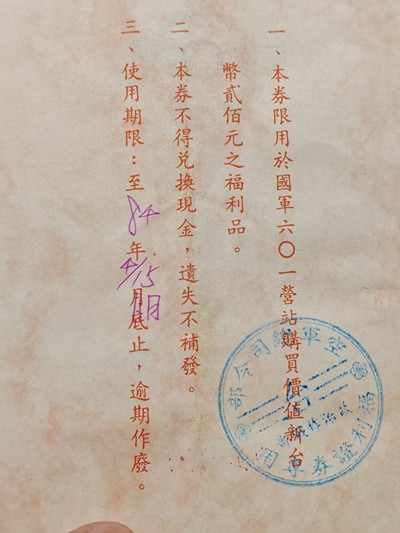 一、本券限用於國軍六〇一營站購買價值新台
幣貳佰元之福利品。
二、本券不得兌換現金，遺失不補發。
三、使用期限：至84年4/15日月底止，逾期作廢。
空軍總司令部
福利證券專用